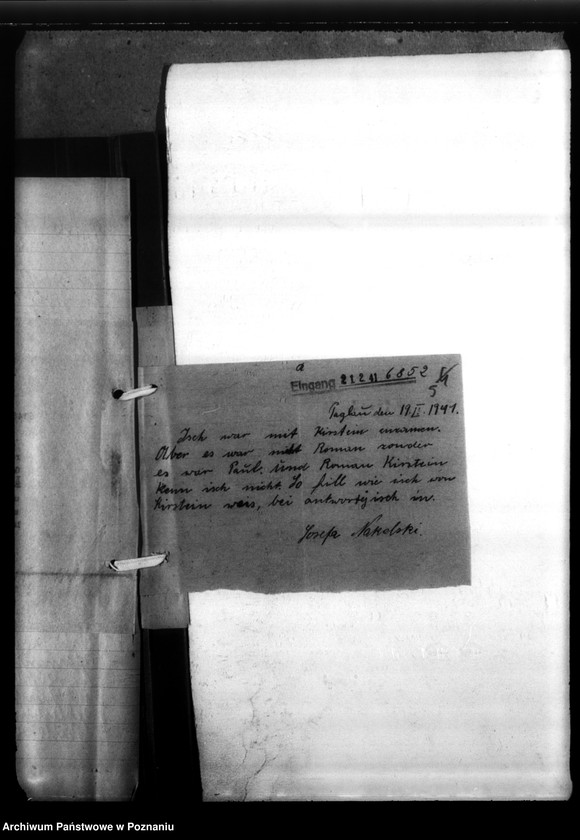 a
Eingang 21 2 41 6852
5
den 19.II.1941.
Isch war mit Kirstein
Aber es war nicht Roman sonder
es war Paul. Und Roman Kirstein
Kenn isch nicht. So fill wie isch von
Kirstein weis, bei antwort isch in.
Josefa Nakelski.
Archiwum Państwowe w Poznaniu